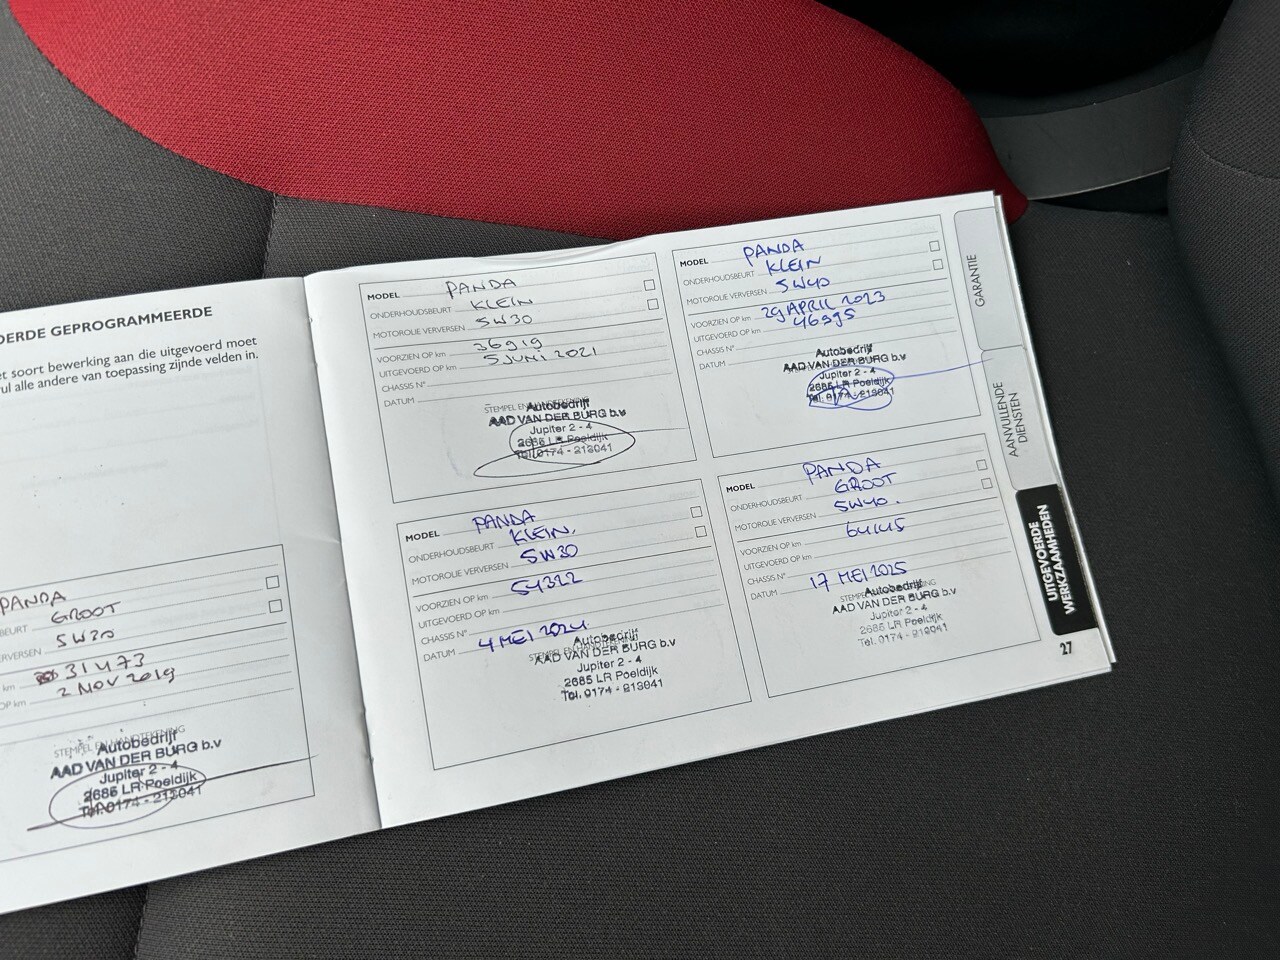 DERDE GEPROGRAMMEERDE
et soort bewerking aan die uitgevoerd moet
ul alle andere van toepassing zijnde velden in.
PANDA
BEURT GROOT
VERVERSEN 5W30
km 31473
OP km 2 NOV 2019
STEMPEL EN HANDTEKENING
Autobedrijf
AAD VAN DER BURG b.v
Jupiter 2 - 4
2685 LR Poeldijk
Tel. 0174 - 213041
MODEL PANDA
ONDERHOUDSBEURT KLEIN
MOTOROLIE VERVERSEN 5W30
VOORZIEN OP km 36919
UITGEVOERD OP km 5 JUNI 2021
CHASSIS N°
DATUM
STEMPEL EN HANDTEKENING
Autobedrijf
AAD VAN DER BURG b.v
Jupiter 2 - 4
2685 LR Poeldijk
Tel. 0174 - 213041
MODEL PANDA
ONDERHOUDSBEURT KLEIN
MOTOROLIE VERVERSEN 5W40
VOORZIEN OP km 29 APRIL 2023
UITGEVOERD OP km 46995
CHASSIS N°
DATUM
Autobedrijf
AAD VAN DER BURG b.v
Jupiter 2 - 4
2685 LR Poeldijk
Tel. 0174 - 213041
MODEL PANDA
ONDERHOUDSBEURT KLEIN.
MOTOROLIE VERVERSEN 5W30
VOORZIEN OP km 54322
UITGEVOERD OP km
CHASSIS N°
DATUM 4 MEI 2024
STEMPEL EN HANDTEKENING
Autobedrijf
AAD VAN DER BURG b.v
Jupiter 2 - 4
2685 LR Poeldijk
Tel. 0174 - 213041
MODEL PANDA
ONDERHOUDSBEURT GROOT
MOTOROLIE VERVERSEN 5W40.
VOORZIEN OP km 64145
UITGEVOERD OP km
CHASSIS N°
DATUM 17 MEI 2025
STEMPEL EN HANDTEKENING
Autobedrijf
AAD VAN DER BURG b.v
Jupiter 2 - 4
2685 LR Poeldijk
Tel. 0174 - 213041
GARANTIE
AANVULLENDE
DIENSTEN
UITGEVOERDE
WERKZAAMHEDEN
27